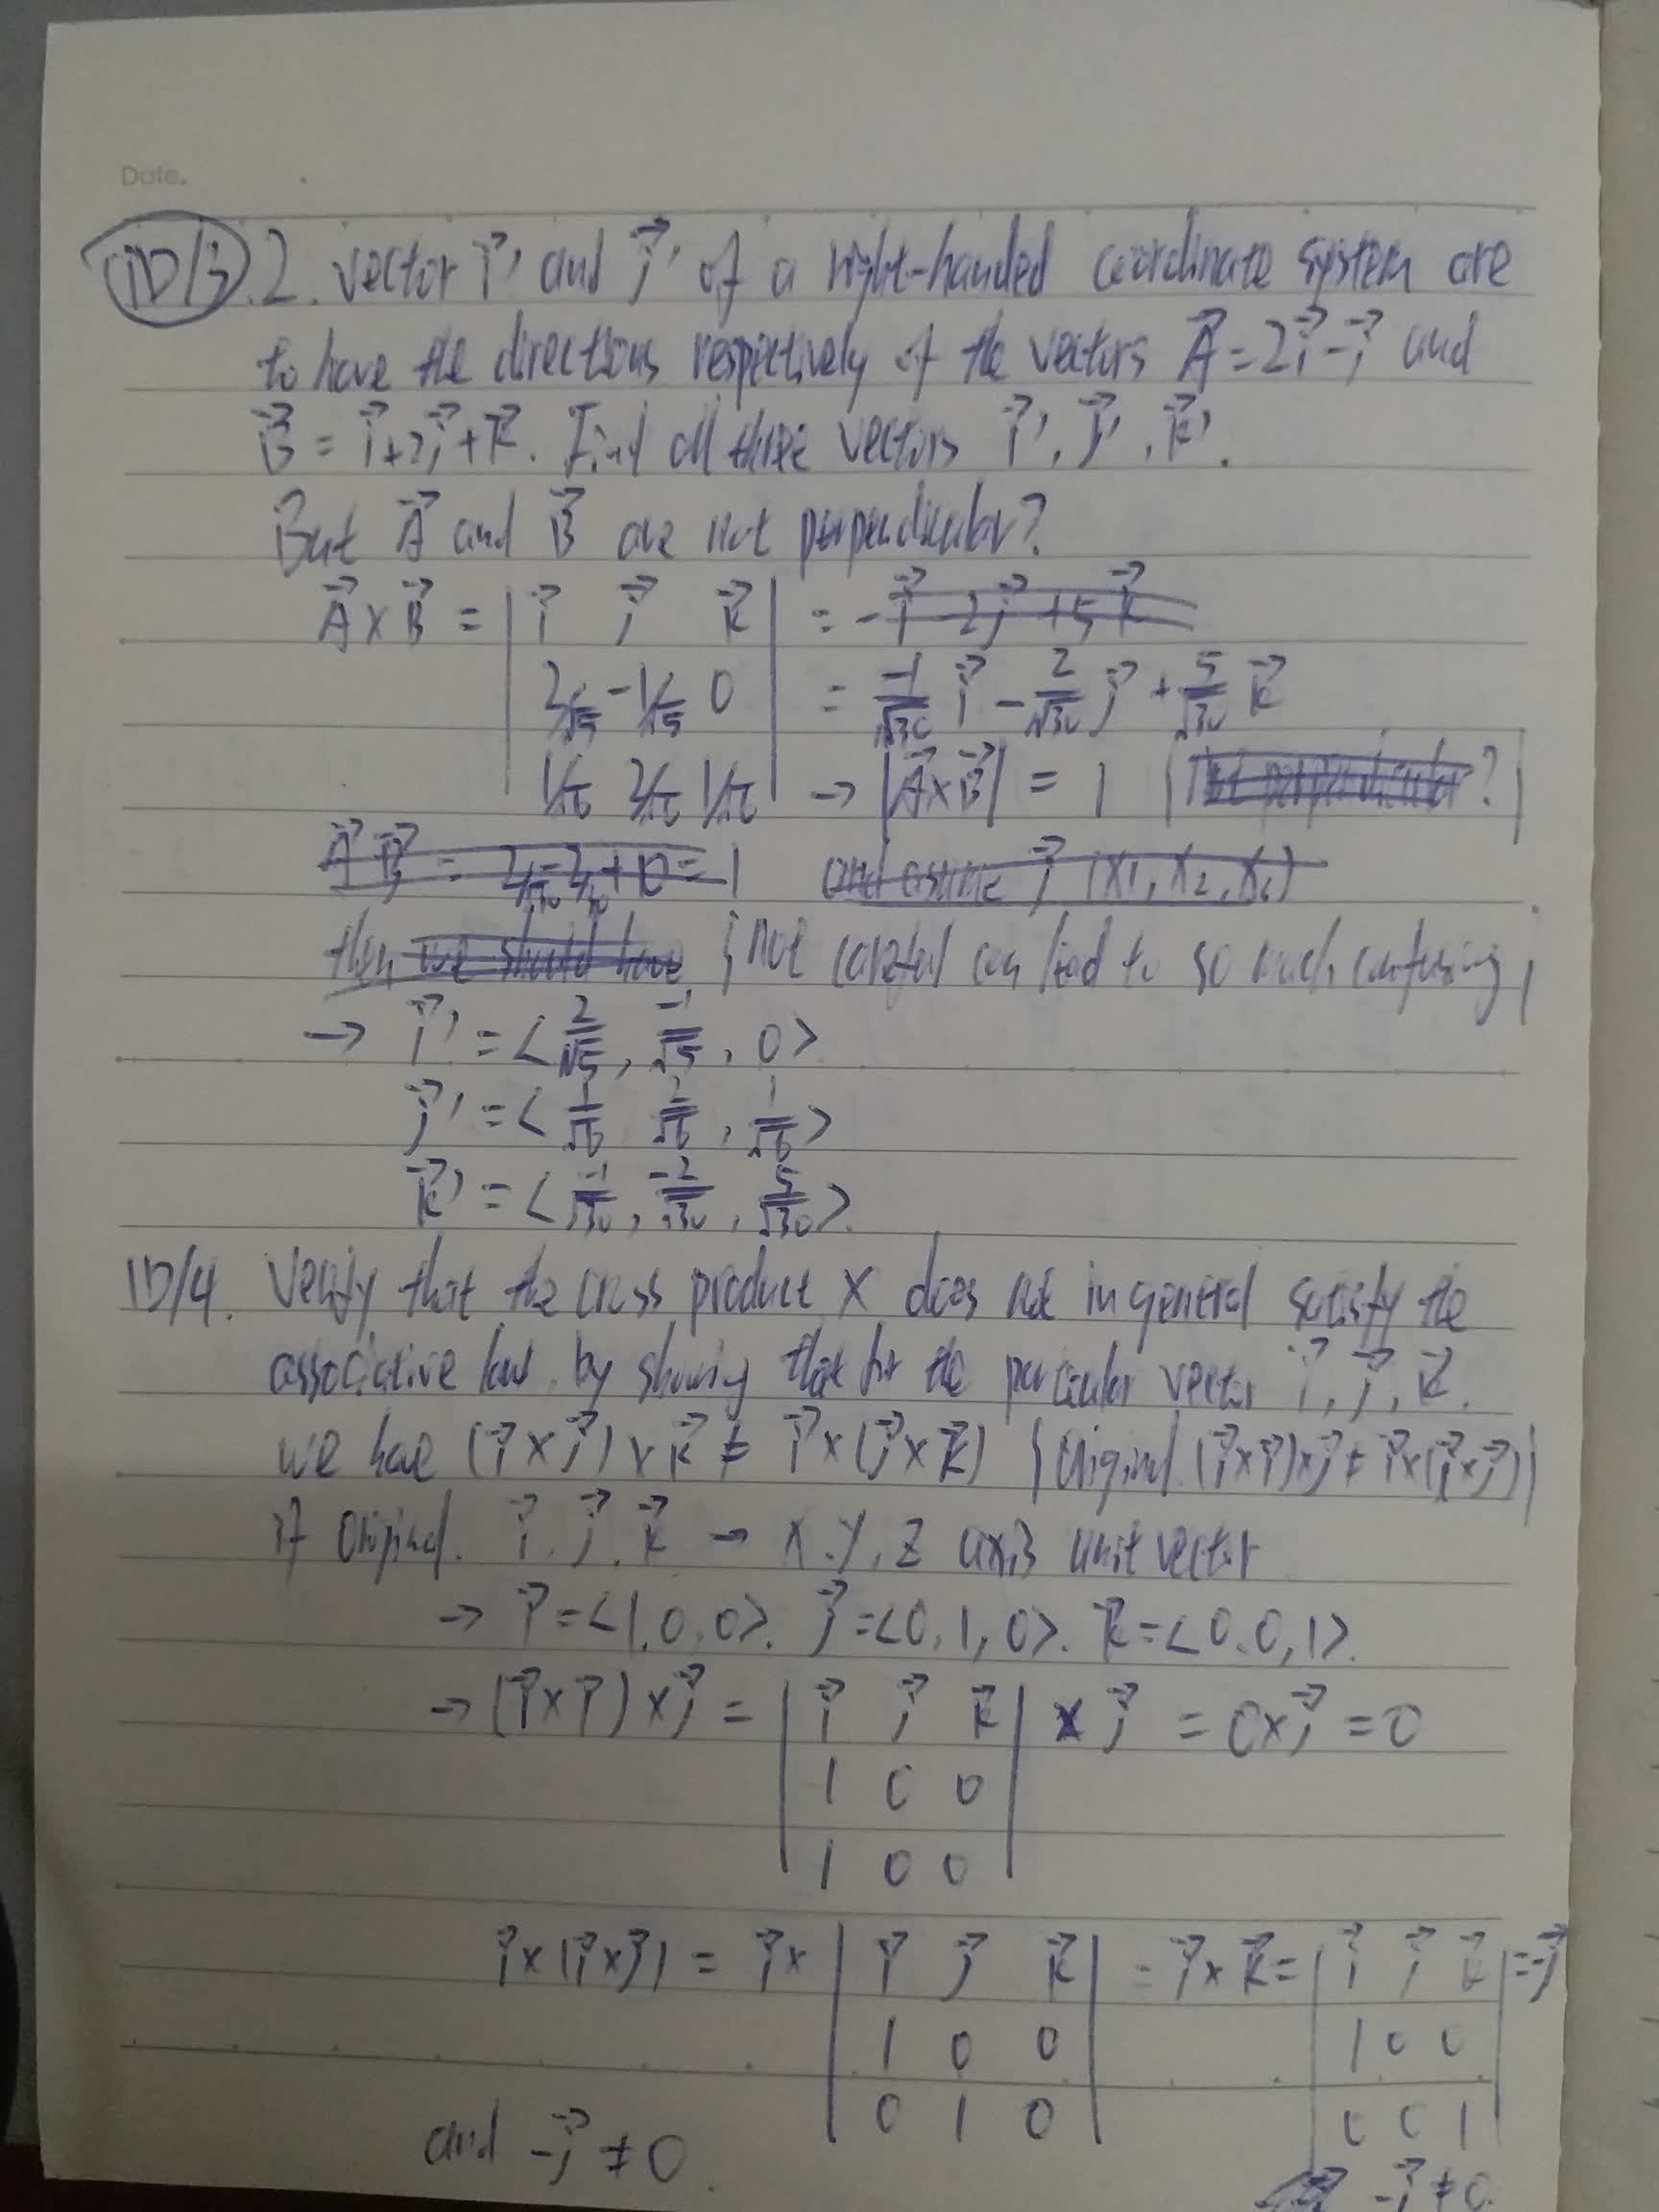 Date.
1D/3.2. vector i⃗' and j⃗' of a right-handed coordinate system are
to have the directions respectively of the vectors A⃗ = 2i⃗ - j⃗ and
B⃗ = i⃗ + 2j⃗ + k⃗. Find all three vectors i⃗', j⃗', k⃗'.
But A⃗ and B⃗ are not perpendicular?
A⃗ × B⃗ = | i⃗ j⃗ k⃗ | = -i⃗ - 2j⃗ + 5k⃗
2/√5 -1/√5 0 | = -1/√30 i⃗ - 2/√30 j⃗ + 5/√30 k⃗
1/√6 2/√6 1/√6 | → |A⃗×B⃗| = 1 ?
and assume j⃗ (x1, x2, x3)
then we should have not careful can lead to so much confusing
→ i⃗' = < 2/√5, -1/√5, 0 >
j⃗' = < 1/√6 2/√6, 1/√6 >
k⃗' = < -1/√30, -2/√30, 5/√30 >.
1D/4. Verify that the cross product × does not in general satisfy the
associative law, by showing that for the particular vector i⃗, j⃗, k⃗.
we have (i⃗ × j⃗) × k⃗ ≠ i⃗ × (j⃗ × k⃗) | Original. (i⃗×i⃗)×j⃗ ≠ i⃗×(i⃗×j⃗) |
if original. i⃗. j⃗. k⃗ → x. y, z axis unit vector
→ i⃗ = <1, 0, 0>. j⃗ = <0, 1, 0>. k⃗ = <0, 0, 1>.
→ (i⃗ × i⃗) × j⃗ = | i⃗ j⃗ k⃗ | × j⃗ = 0 × j⃗ = 0
1 0 0
1 0 0
i⃗ × (i⃗ × j⃗) = i⃗ × | i⃗ j⃗ k⃗ | = i⃗ × k⃗ = | i⃗ j⃗ k⃗ | = -j⃗
1 0 0 | 1 0 0
0 1 0 | 0 0 1
and -j⃗ ≠ 0.
-j⃗ ≠ 0.